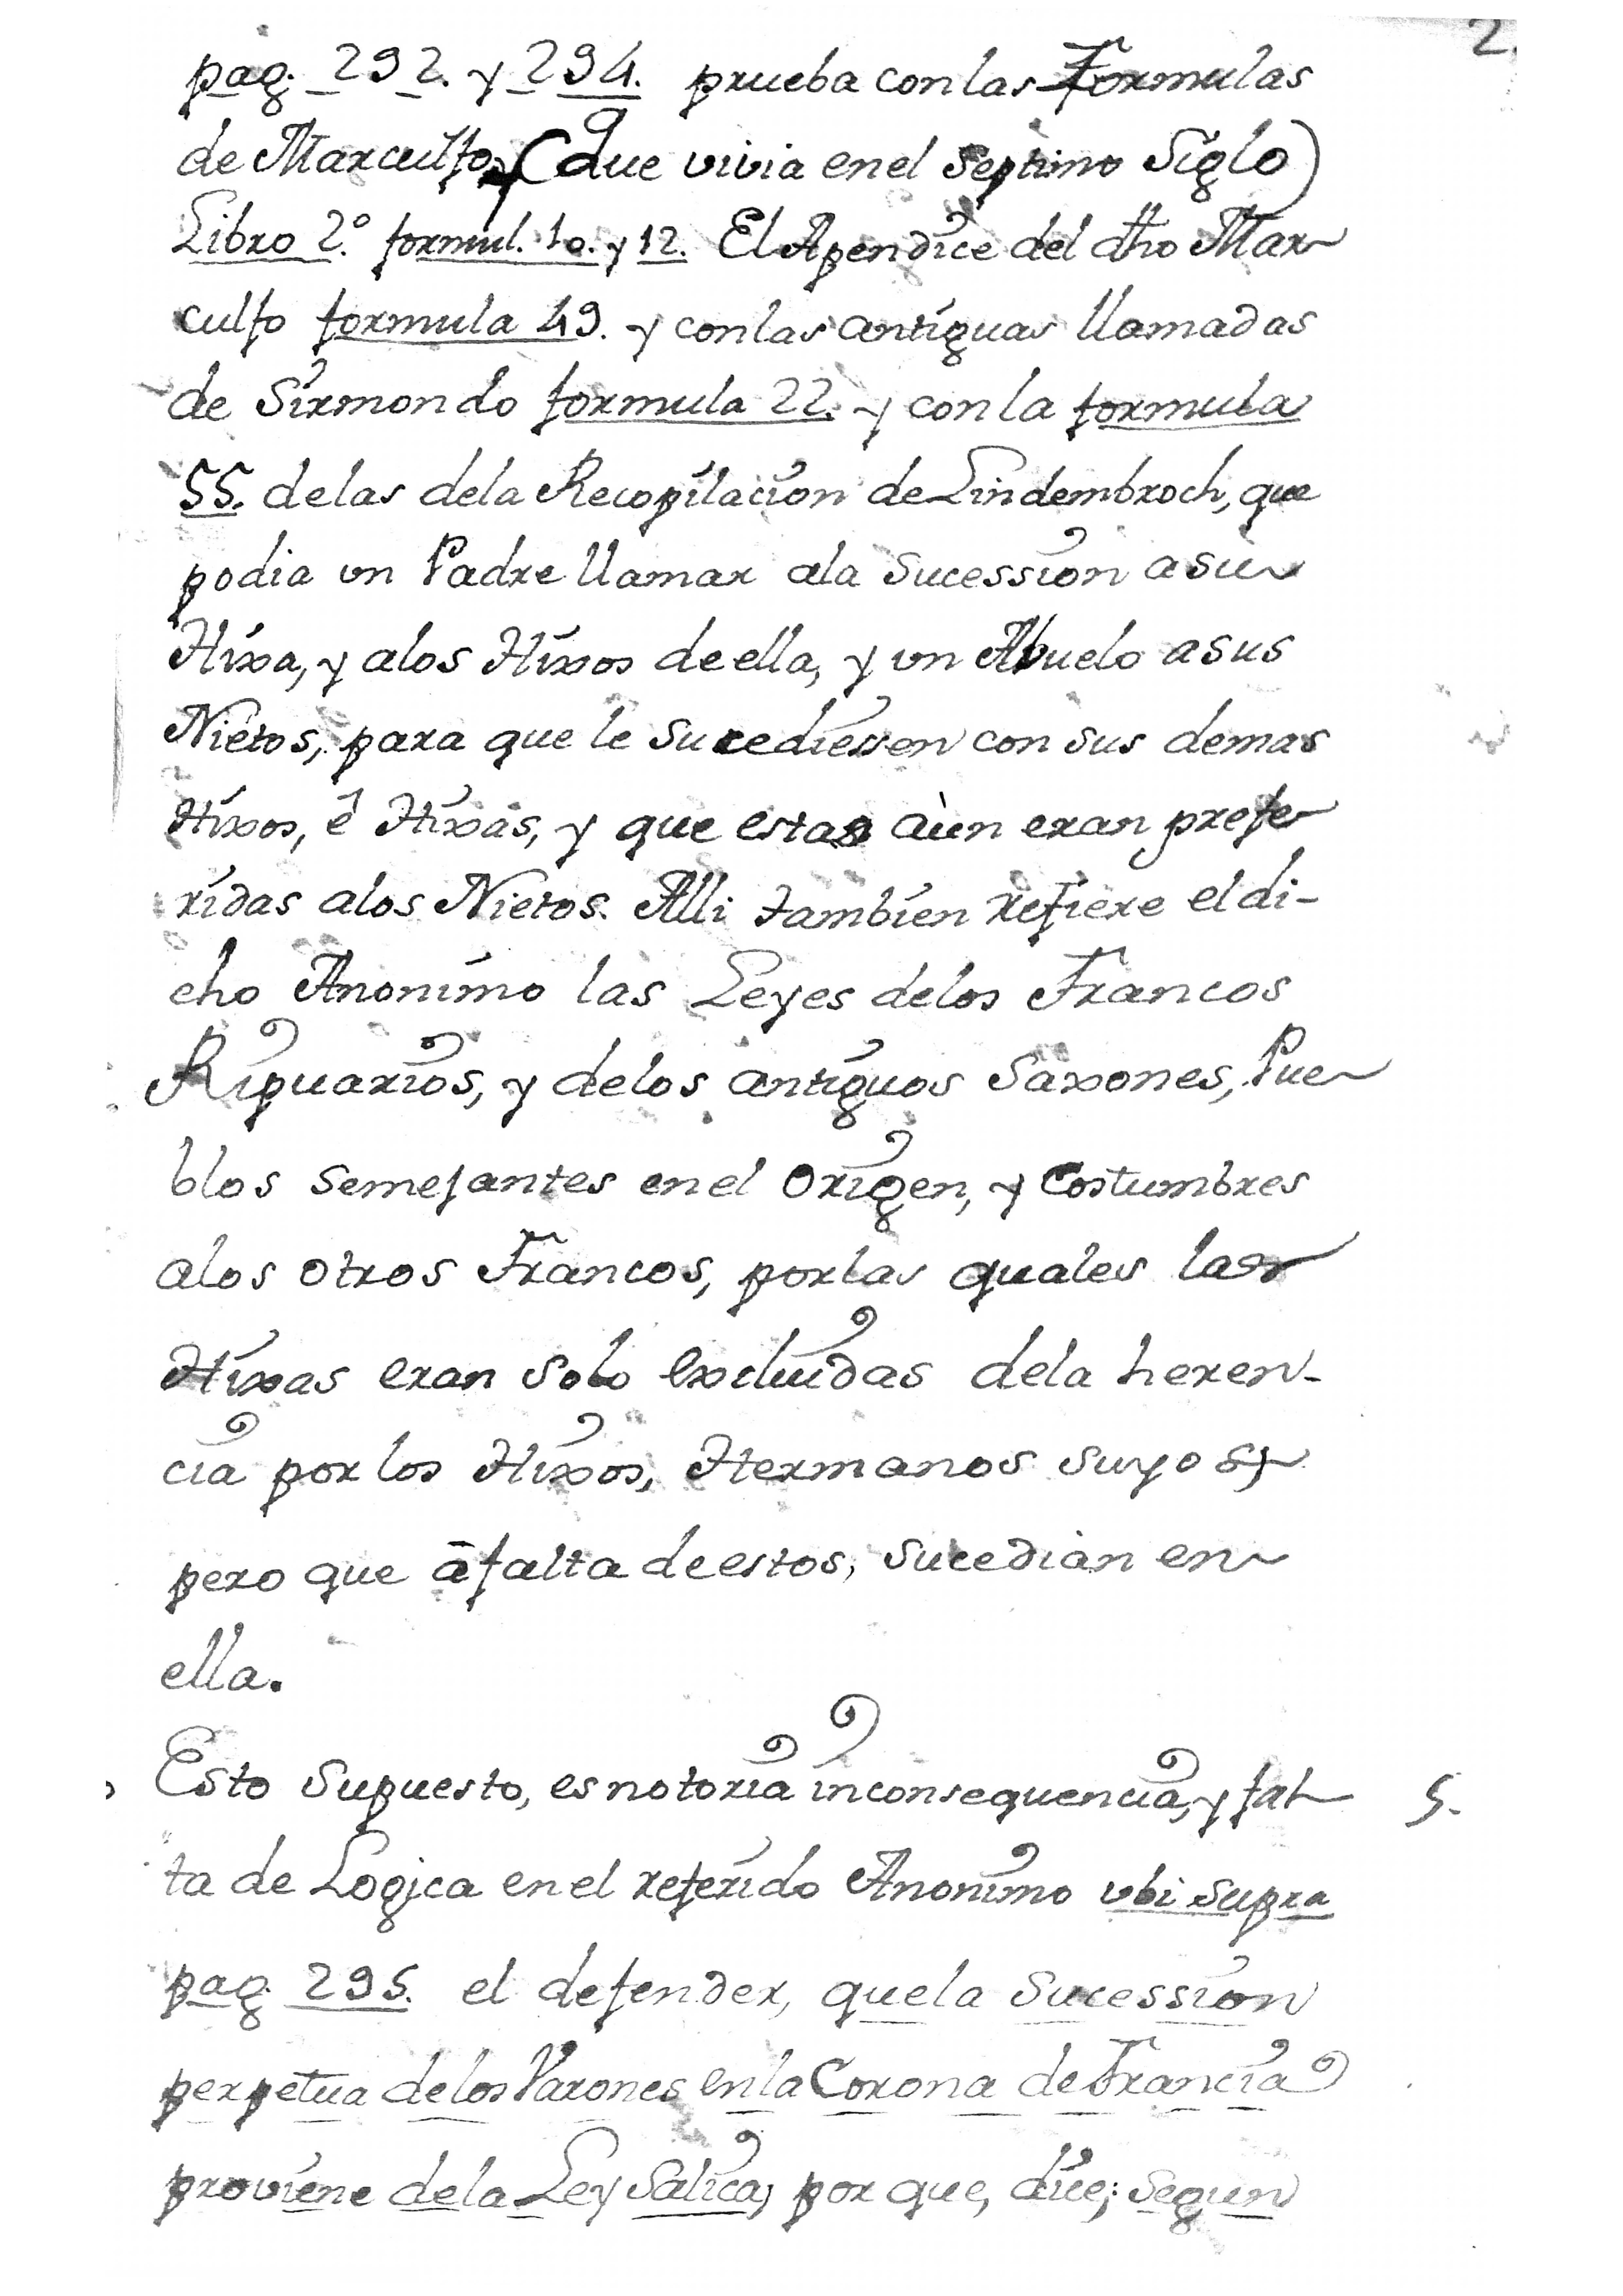 2.
pag. 292. y 294. prueba con las Formulas
de Marculfo, (que vivia en el septimo Siglo)
Libro 2.º formul. 10. y 12. El Apendice del dho Mar
culfo formula 49. y con las antiguas llamadas
de Sirmondo formula 22. y con la formula
55. de las dela Recopilacion de Lindembroch, que
podia un Padre llamar ala Sucession a su
Hixa, y alos Hixos de ella, y un Abuelo a sus
Nietos, para que le sucediessen con sus demas
Hixos, ê Hixas, y que estas aùn eran prefe
ridas alos Nietos. Alli tambien refiere el di-
cho Anonimo las Leyes delos Francos
Riquarios, y delos antiguos Saxones, Pue
blos semejantes en el Origen, y Costumbres
alos otros Francos, por las quales las
Hixas eran solo excluidas dela heren-
cia por los Hixos, Hermanos suyos,
pero que â falta de estos, sucedian en
ella.
Esto supuesto, es notoria inconsequencia, y fal 5.
ta de Logica en el referido Anonimo ubi supra
pag. 295. el defender, que la Sucession
perpetua delos Varones en la Corona de Francia
proviene dela Ley Salica, por que, dice; segun